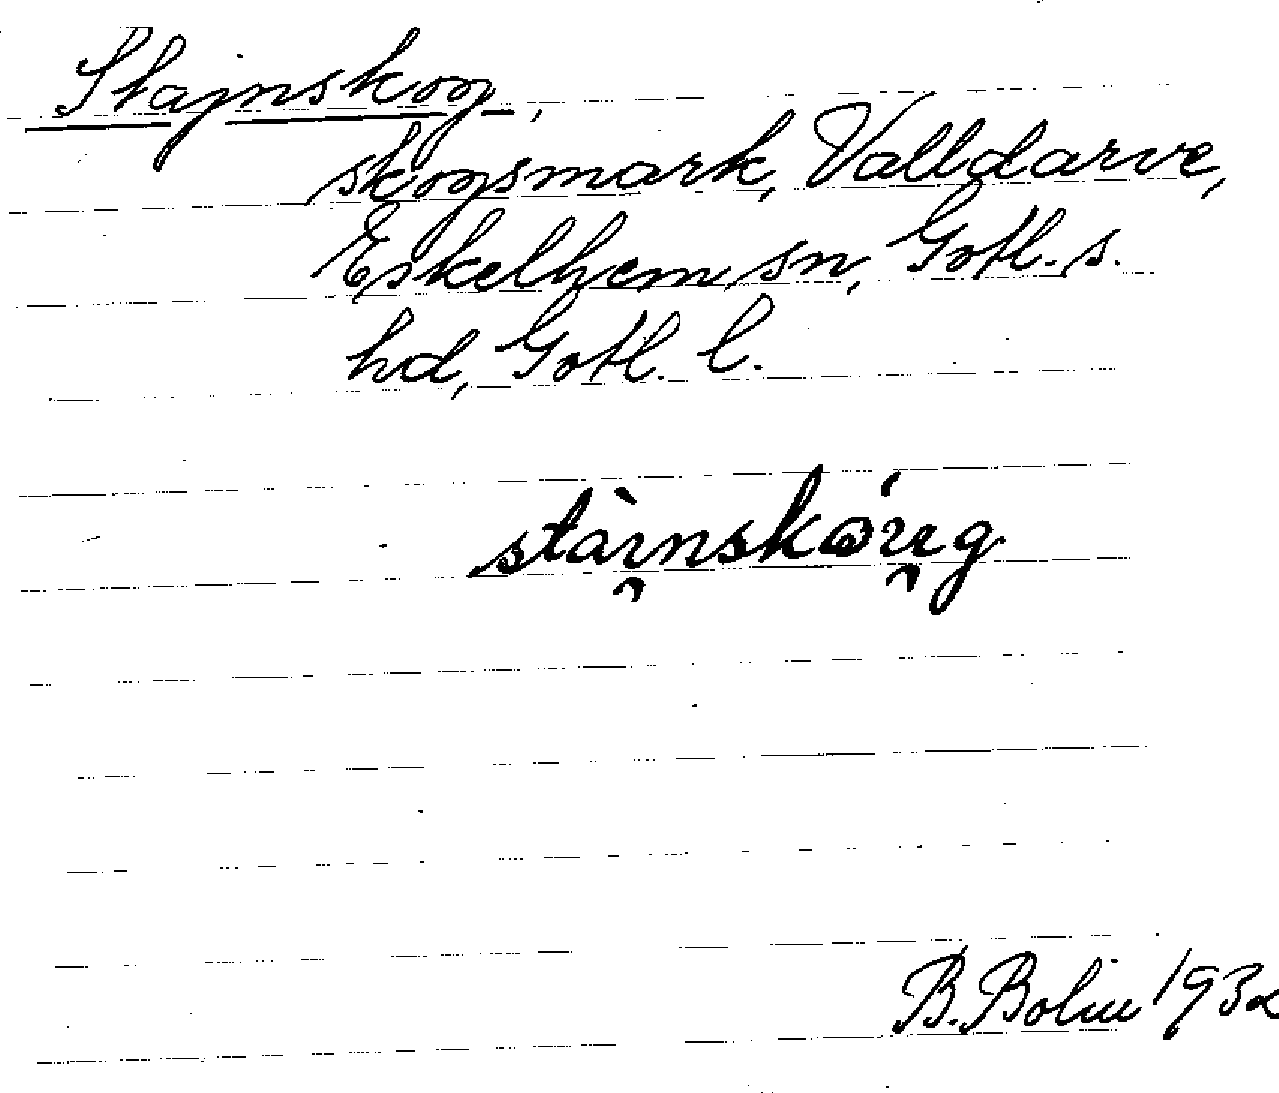 Stajnskog,
skogsmark, Valldarve,
Eskelhem sn, Gotl. s.
hd, Gotl. l.
B. Bolin 1932